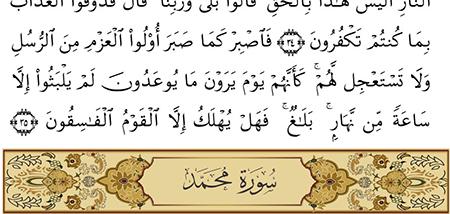 النَّارِ أَلَيْسَ هَٰذَا بِالْحَقِّ قَالُوا بَلَىٰ وَرَبِّنَا قَالَ فَذُوقُوا الْعَذَابَ
بِمَا كُنتُمْ تَكْفُرُونَ ﴿٣٤﴾ فَاصْبِرْ كَمَا صَبَرَ أُوْلُوا الْعَزْمِ مِنَ الرُّسُلِ
وَلَا تَسْتَعْجِل لَّهُمْ ۚ كَأَنَّهُمْ يَوْمَ يَرَوْنَ مَا يُوعَدُونَ لَمْ يَلْبَثُوا إِلَّا
سَاعَةً مِّن نَّهَارٍ ۚ بَلَاغٌ ۚ فَهَلْ يُهْلَكُ إِلَّا الْقَوْمُ الْفَاسِقُونَ ﴿٣٥﴾
سُورَةُ مُحَمَّد